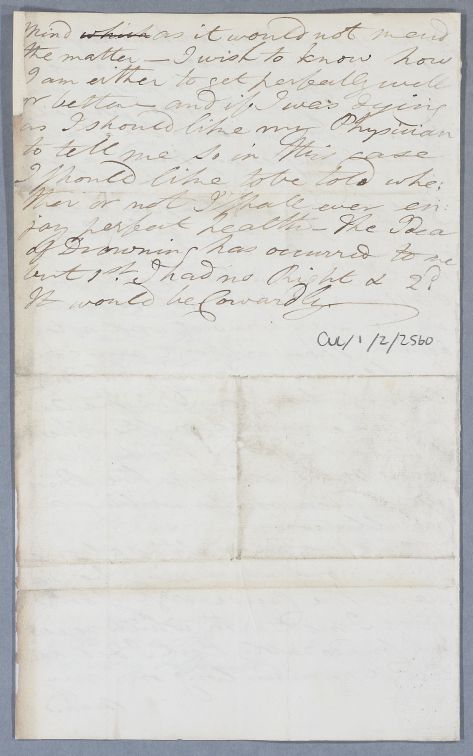 Mind which as it would not mend
the matter — I wish to know how
I am either to get perfectly well
or better — and if I was dying
as I should like my Physician
to tell me so in this case
I should like to be told whe:
ther or not I shall ever en:
joy perfect health — the Idea
of Drowning has occurred to me
but 1st. I had no Right & 2d
It would be Cowardly
CUL/1/2/2560